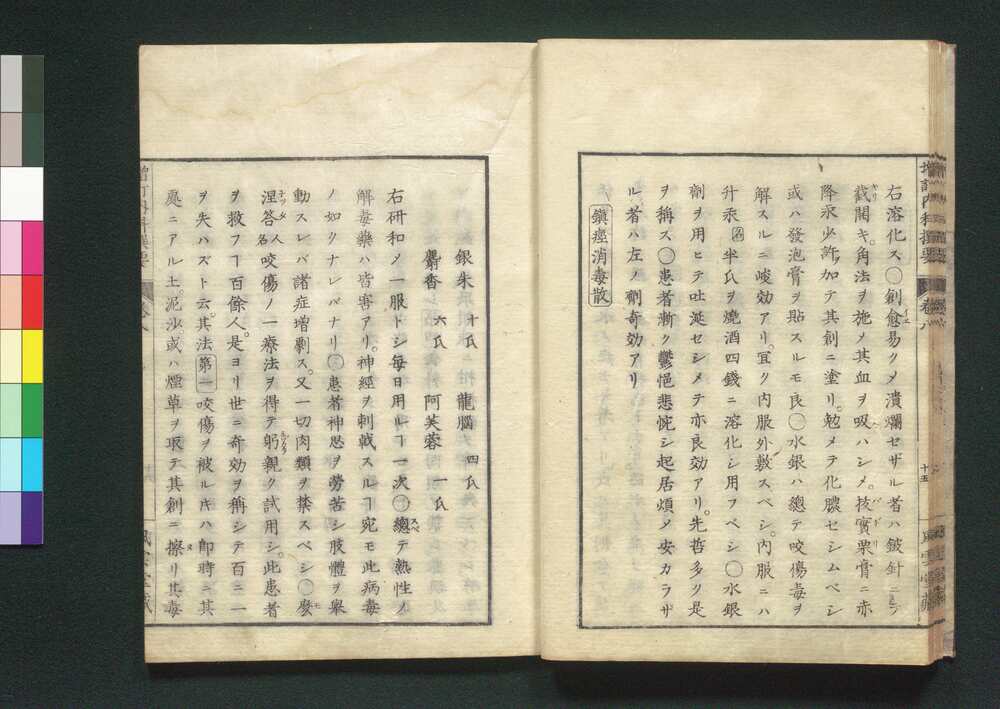 右溶化ス○創愈易クメ潰爛セザル者ハ鈹針ニテ
截開キ。角法ヲ施メ其血ヲ吸ハシメ。抜爾栗膏ニ赤
降汞少許加テ其創ニ塗リ。勉メテ化膿セシムベシ
或ハ發泡膏ヲ貼スルモ良○水銀ハ總テ咬傷毒ヲ
解スルニ峻効アリ。宜ク内服外敷スベシ。内服ニハ
升汞名半氏ヲ燒酒四錢ニ溶化シ用フベシ○水銀
劑ヲ用ヒテ吐涎セシメテ亦良効アリ。先哲多ク是
ヲ稱ス○患者漸ク鬱悒悲惋シ起居煩メ安カラザ
ル者ハ左ノ劑奇効アリ
鎭痙消毒散
増訂内科撰要 卷八 十五 風雲堂藏
銀朱 十氏 龍腦 四氏
麝香 六氏 阿芙蓉 一氏
右研和メ一服トシ毎日用ルヿ一次○總テ熱性ノ
解毒藥ハ皆害アリ。神經ヲ刺戟スルヿ宛モ此病毒
ノ如クナレバナリ○患者神思ヲ勞苦シ肢體ヲ擧
動スレバ諸症増劇ス。又一切肉類ヲ禁スベシ○麼
涅答人名咬傷ノ一療法ヲ得テ躬親ク試用シ。此患者
ヲ救フヿ百餘人。是ヨリ世ニ奇効ヲ稱シテ百ニ一
ヲ失ハズト云。其法第一咬傷ヲ被ルキハ卽時ニ其
處ニアル土。泥沙或ハ煙草ヲ取テ其創ニ擦リ其毒